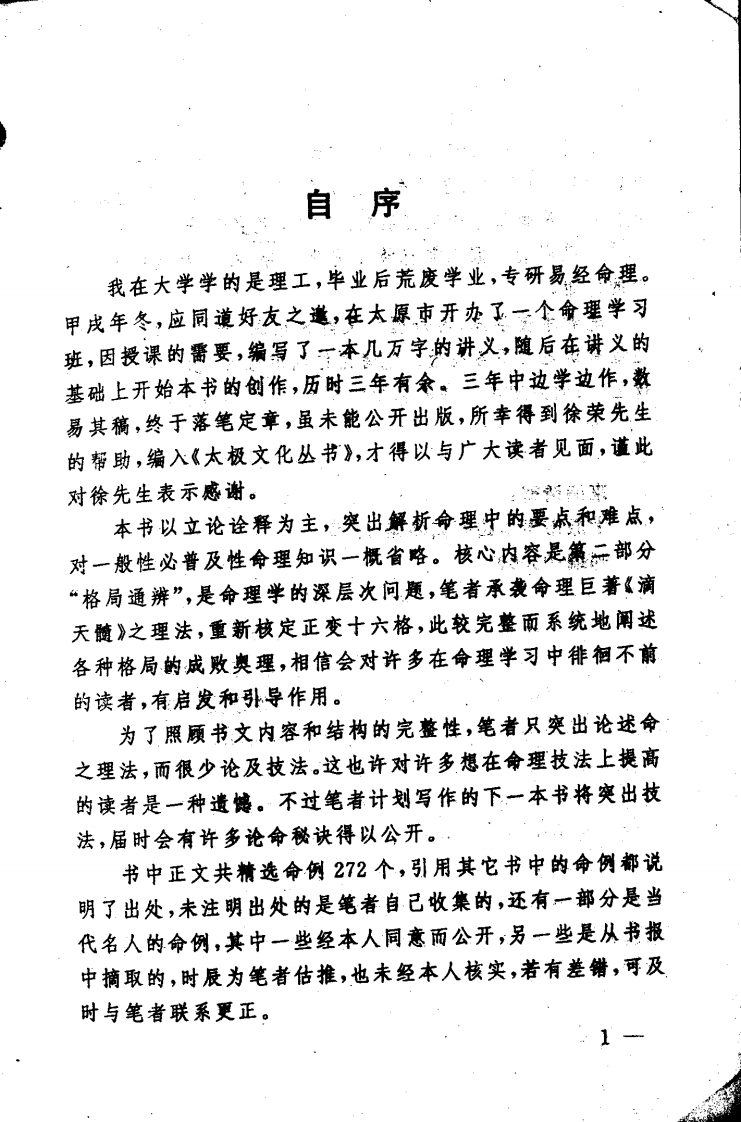 自 序
我在大学学的是理工,毕业后荒废学业,专研易经命理。
甲戌年冬,应同道好友之邀,在太原市开办了一个命理学习
班,因授课的需要,编写了一本几万字的讲义,随后在讲义的
基础上开始本书的创作,历时三年有余。三年中边学边作,数
易其稿,终于落笔定章,虽未能公开出版,所幸得到徐荣先生
的帮助,编入《太极文化丛书》,才得以与广大读者见面,谨此
对徐先生表示感谢。
本书以立论诠释为主,突出解析命理中的要点和难点,
对一般性必普及性命理知识一概省略。核心内容是第二部分
“格局通辨”,是命理学的深层次问题,笔者承袭命理巨著《滴
天髓》之理法,重新核定正变十六格,此较完整而系统地阐述
各种格局的成败奥理,相信会对许多在命理学习中徘徊不前
的读者,有启发和引导作用。
为了照顾书文内容和结构的完整性,笔者只突出论述命
之理法,而很少论及技法。这也许对许多想在命理技法上提高
的读者是一种遗憾。不过笔者计划写作的下一本书将突出技
法,届时会有许多论命秘诀得以公开。
书中正文共精选命例 272 个,引用其它书中的命例都说
明了出处,未注明出处的是笔者自己收集的,还有一部分是当
代名人的命例,其中一些经本人同意而公开,另一些是从书报
中摘取的,时辰为笔者估推,也未经本人核实,若有差错,可及
时与笔者联系更正。
1 —